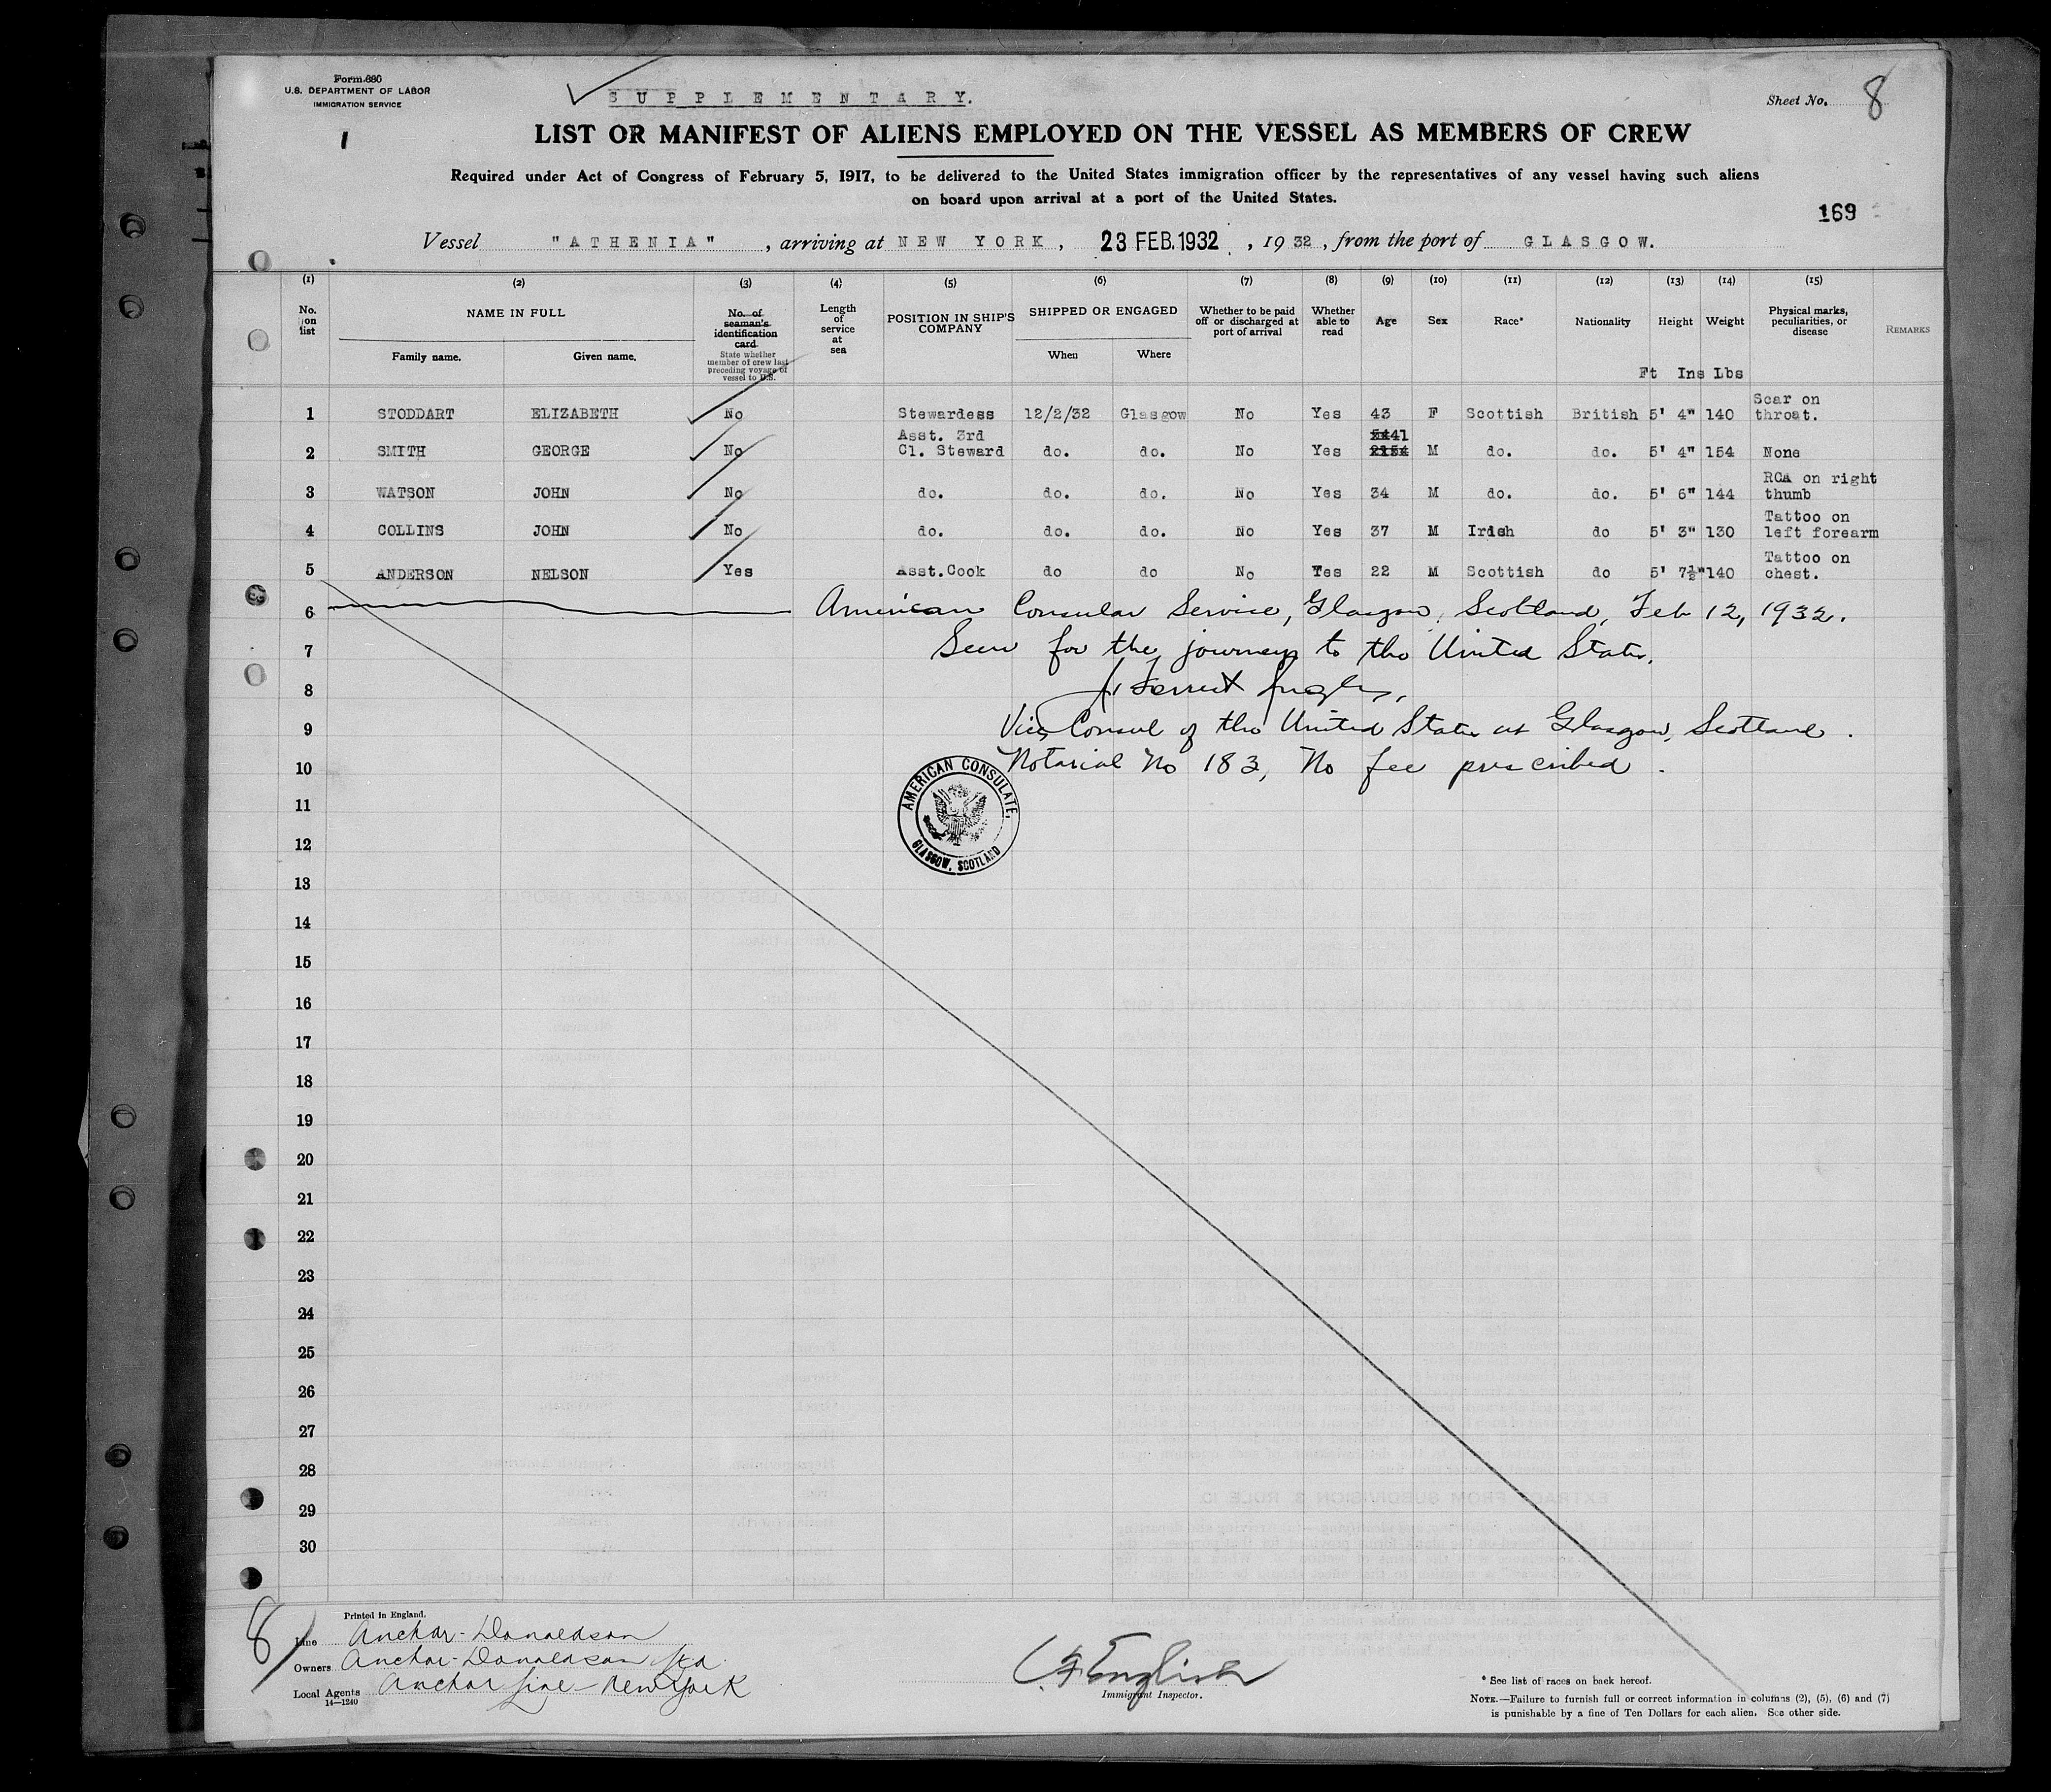 Form 680
U.S. DEPARTMENT OF LABOR
IMMIGRATION SERVICE
1
SUPPLEMENTARY.
Sheet No. 8
LIST OR MANIFEST OF ALIENS EMPLOYED ON THE VESSEL AS MEMBERS OF CREW
Required under Act of Congress of February 5, 1917, to be delivered to the United States immigration officer by the representatives of any vessel having such aliens
on board upon arrival at a port of the United States.
169
Vessel "ATHENIA", arriving at NEW YORK, 23 FEB. 1932, 1932, from the port of GLASGOW.
(1) (2) (3) (4) (5) (6) (7) (8) (9) (10) (11) (12) (13) (14) (15)
No. on list
NAME IN FULL
Family name. Given name.
No. of seaman's identification card
State whether member of crew last preceding voyage of vessel to U.S.
Length of service at sea
POSITION IN SHIP'S COMPANY
SHIPPED OR ENGAGED
When Where
Whether to be paid off or discharged at port of arrival
Whether able to read
Age
Sex
Race*
Nationality
Height
Weight
Physical marks, peculiarities, or disease
REMARKS
Ft Ins Lbs
1 STODDART ELIZABETH No Stewardess 12/2/32 Glasgow No Yes 43 F Scottish British 5' 4" 140 Scar on throat.
2 SMITH GEORGE No Asst. 3rd Cl. Steward do. do. No Yes 41 M do. do. 5' 4" 154 None
3 WATSON JOHN No do. do. do. No Yes 34 M do. do. 5' 6" 144 RCA on right thumb
4 COLLINS JOHN No do. do. do. No Yes 37 M Irish do 5' 3" 130 Tattoo on left forearm
5 ANDERSON NELSON Yes Asst. Cook do do No Yes 22 M Scottish do 5' 7½" 140 Tattoo on chest.
6 American Consular Service, Glasgow, Scotland, Feb 12, 1932.
7 Seen for the journey to the United States.
8
9 Vice Consul of the United States at Glasgow, Scotland.
10 Notarial No 183, No fee prescribed.
AMERICAN CONSULATE,
GLASGOW, SCOTLAND
11
12
13
14
15
16
17
18
19
20
21
22
23
24
25
26
27
28
29
30
8
Printed in England.
Line Anchor-Donaldson
Owners Anchor-Donaldson Ltd.
Local Agents Anchor Line - New York
14—1240
English
Immigrant Inspector.
* See list of races on back hereof.
NOTE.—Failure to furnish full or correct information in columns (2), (5), (6) and (7)
is punishable by a fine of Ten Dollars for each alien. See other side.